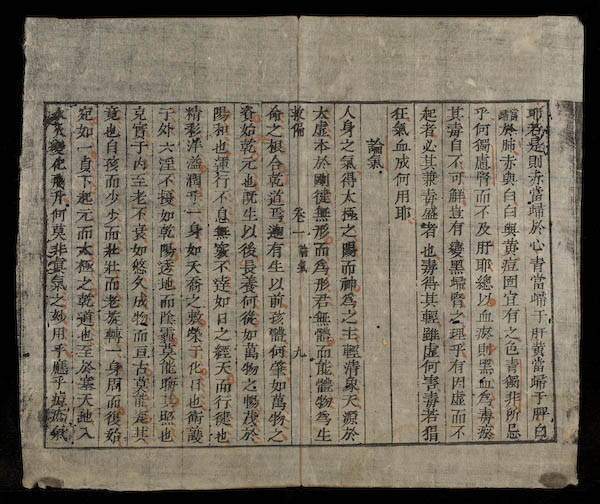 耶若是則赤當歸於心青當歸于肝黃當歸于脾白
當歸於肺赤與白白與黃痘固宜有之色青獨非所忌
乎何獨慮腎而不及肝耶總以血瘀則黑血為毒瘀
其毒自不可解豈有變黑歸腎之理乎有因虛而不
起者必其兼毒盛者也毒得其輕雖虛何害毒若猖
狂氣血成何用耶
論氣
人身之氣得太極之陽而神為之主輕清象天源於
太虛本於剛健無形而為形君無體而能體物為生
救偏 卷一 論氣 九
命之根合乾道焉迺有生以前孩體何肇如萬物之
資始乾元也既生以後長養何從如萬物之暢茂於
陽和也運行不息無竅不達如日之經天而行健也
精彩洋溢潤乎一身如天喬之敷榮于化日也衛護
于外六淫不擾如乾陽透地而陰霾莫能翳其照也
充實于內至老不衰如悠久成物而亘古莫能定其
竟也自孩而少少而壯壯而老旋轉一身周而復始
宛如一貞下起元而太極之乾道也至於塞天地入
水火變化飛升何莫非真氣之妙用乎應乎痘